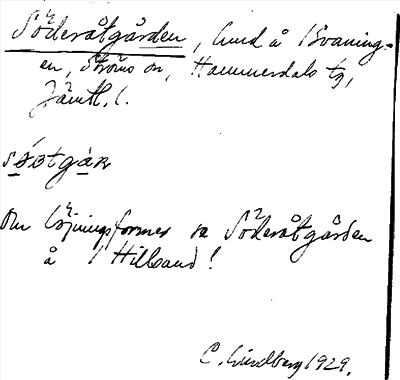 Söderåtgården, hmd å 1 Svaning-
en, Ströms sn, Hammerdals tg,
Jämtl. l.
Om böjningsformer se Söderåtgården
å 1 Hillsand!
C. Lindberg 1929.